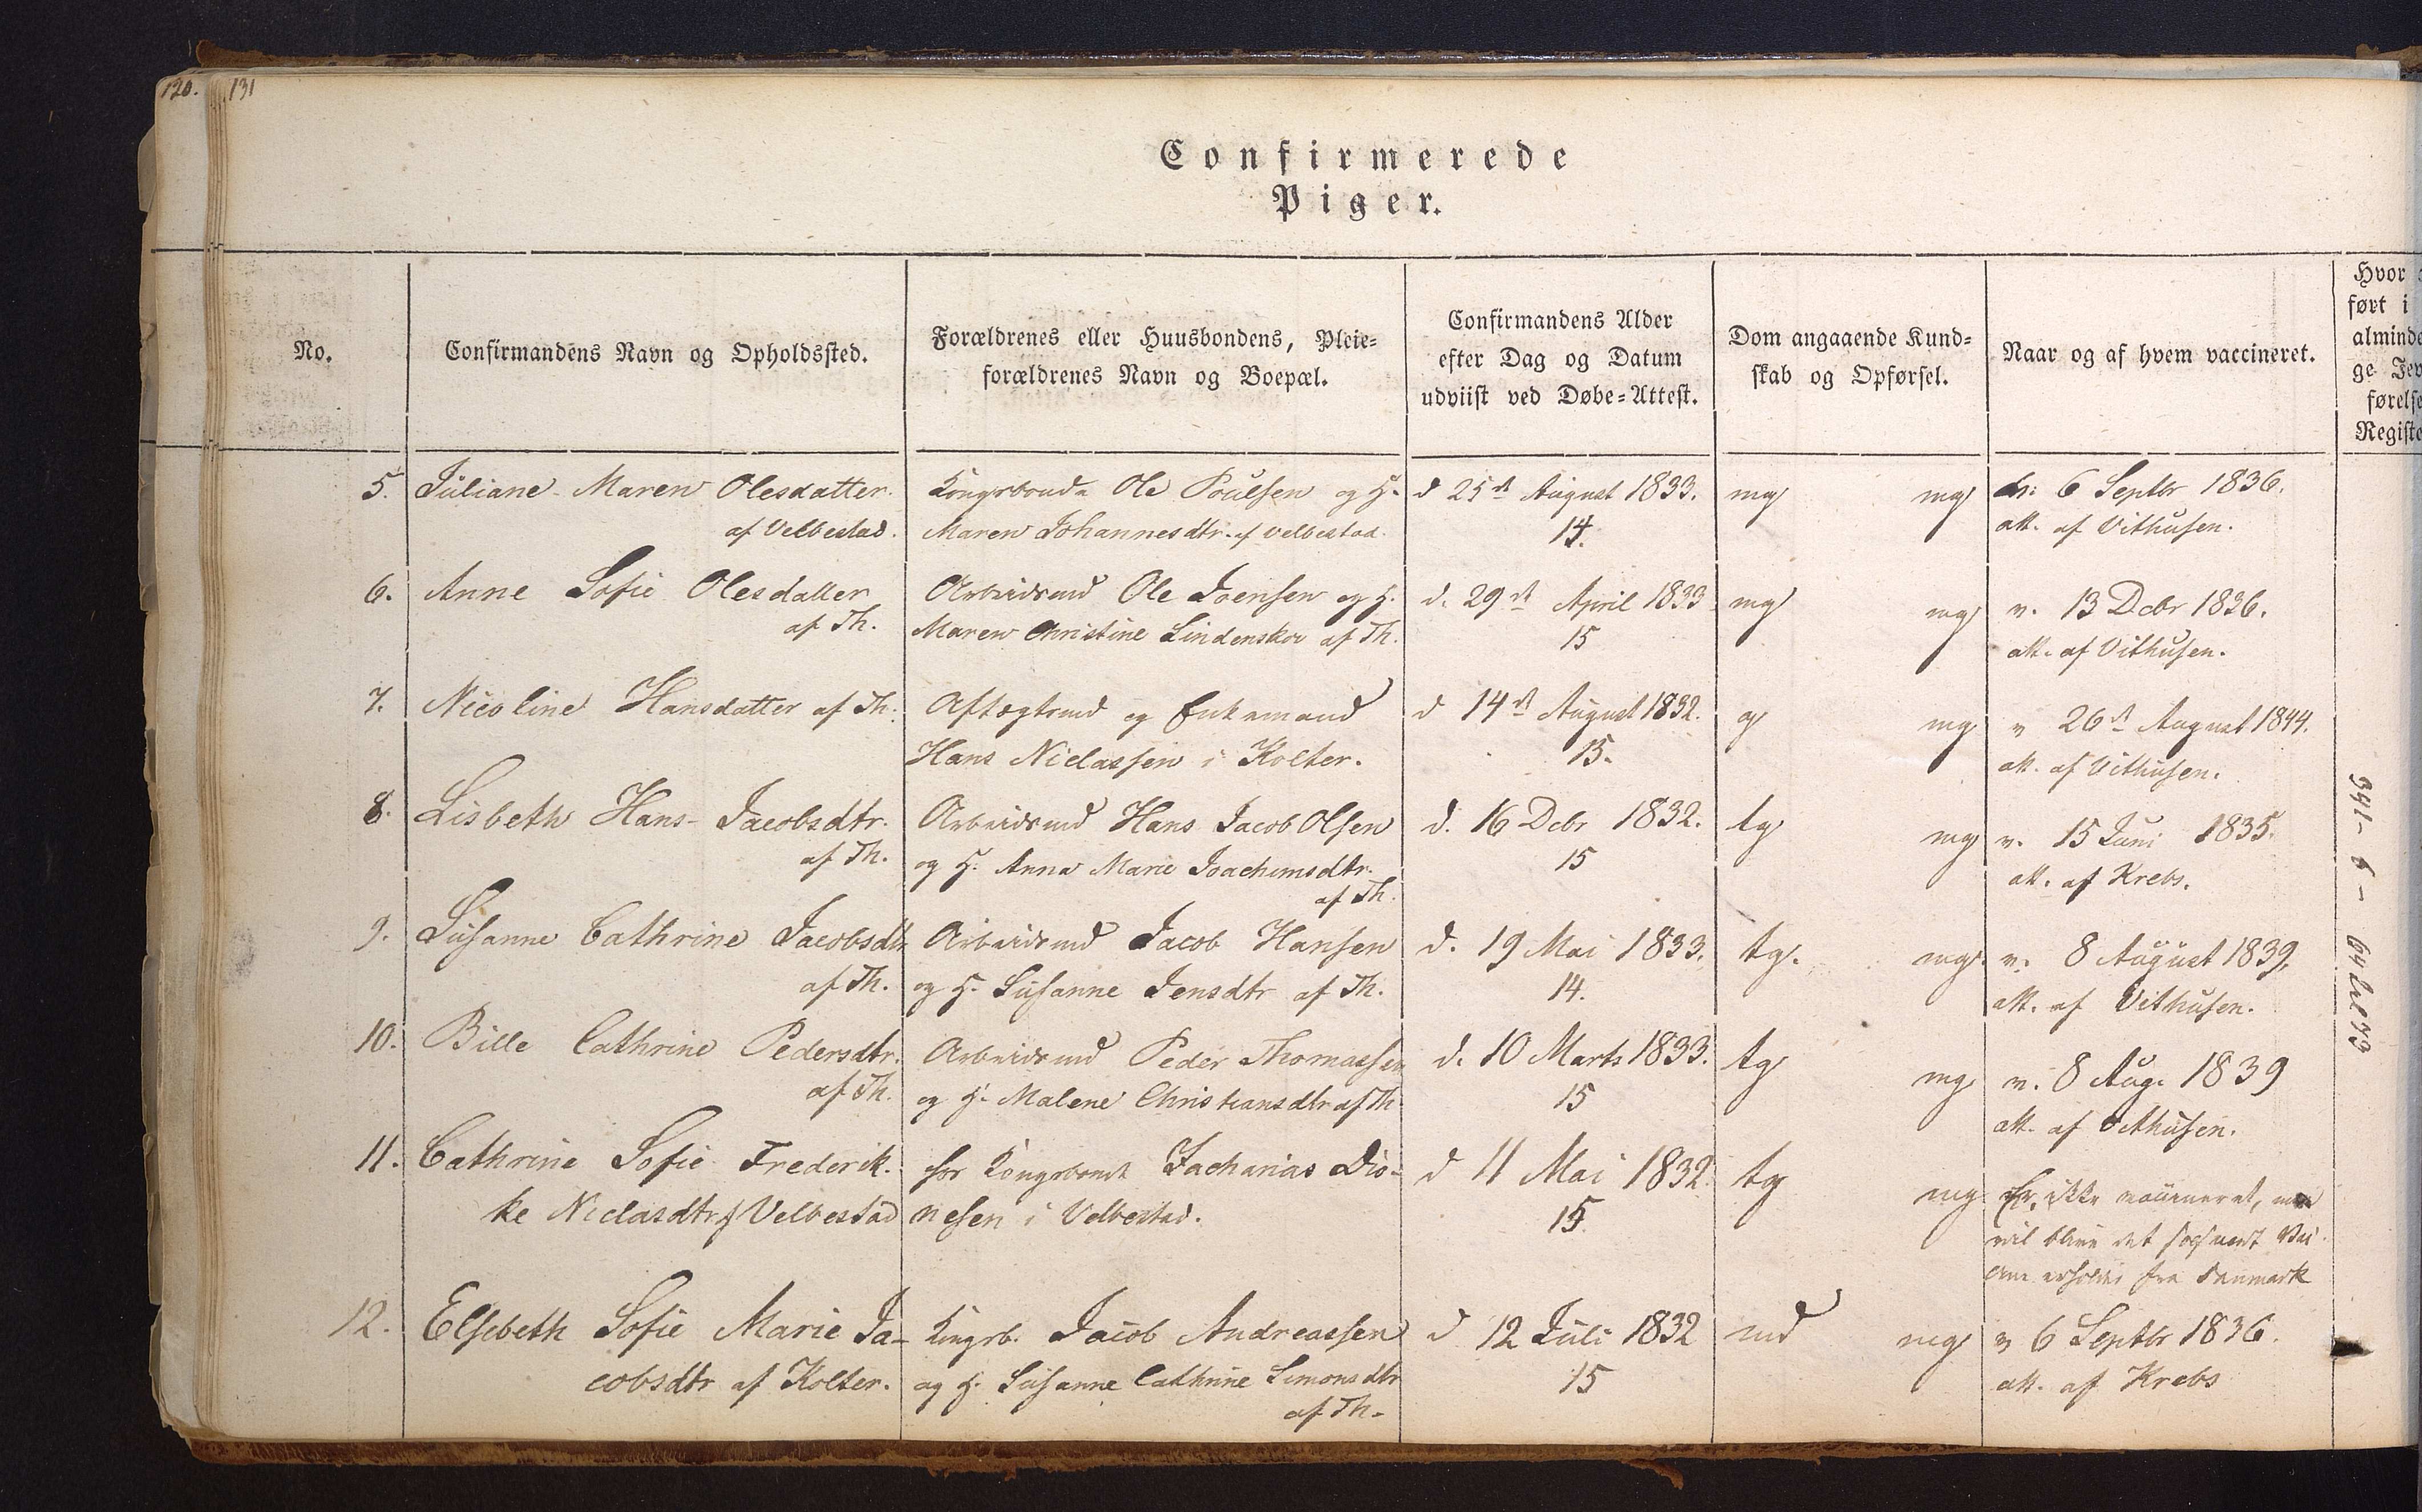 120. 131
Confirmerede
Piger.
No.
Confirmandens Navn og Opholdssted.
Forældrenes eller Huusbondens, Pleie-
forældrenes Navn og Boepæl.
Confirmandens Alder
efter Dag og Datum
udviist ved Døbe-Attest.
Dom angaaende Kund-
skab og Opførsel.
Naar og af hvem vaccineret.
Hvor
ført i
alminde
ge Jev
førelse
Registe
5. Juliane Maren Olesdatter Kongsbonde Ole Poulsen og H. d 25de August 1833. mg mg 6 Septbr 1836.
af Velbestad. Maren Johannesdtr. af Velbestad. 14. att. af Vithusen.
6. Anne Sofie Olesdatter Arbeidsmd Ole Joensen og H. d. 29de April 1833 mg mg v. 13 Dcbr 1836.
af Th. Maren Christine Lindenskov af Th. 15 att. af Vithusen.
7. Nicoline Hansdatter af Th. Aftægtsmd og Enkemand d 14de August 1832. g mg v 26de August 1844.
Hans Niclassen i Kolter. 15. att. af Vithusen.
8. Lisbeth Hans-Jacobsdtr. Arbeidsmd Hans Jacob Olsen d. 16 Dcbr 1832. tg mg v. 15 Juni 1835.
af Th. og H. Anna Marie Joachimsdtr. 15 att. af Krebs.
af Th.
9. Susanne Cathrine Jacobsdtr Arbeidsmd Jacob Hansen d. 19 Mai 1833. tg. mg. v. 8 August 1839.
af Th. og H. Susanne Jensdtr af Th. 14. att. af Vithusen.
10. Bille Cathrine Pedersdtr. Arbeidsmd Peder Thomassen d. 10 Marts 1833. tg mg v. 8 Aug. 1839
af Th. og H. Malene Christiansdtr af Th. 15 att. af Vithusen.
11. Cathrine Sofie Frederik- for Kongsbonde Zacharias Dio- d 11 Mai 1832. tg mg Er ikke vaccineret, men
ke Niclasdtr af Velbestad nesen i Velbestad. 15 vil blive det saasnart Vac-
cine erholdes fra Danmark
12. Elsebeth Sofie Marie Ja- Kongsb. Jacob Andreassen d 12 Juli 1832 md mg v 6 Septbr 1836.
cobsdtr af Kolter. og H. Susanne Cathrine Simonsdtr 15 att. af Krebs
af Th.